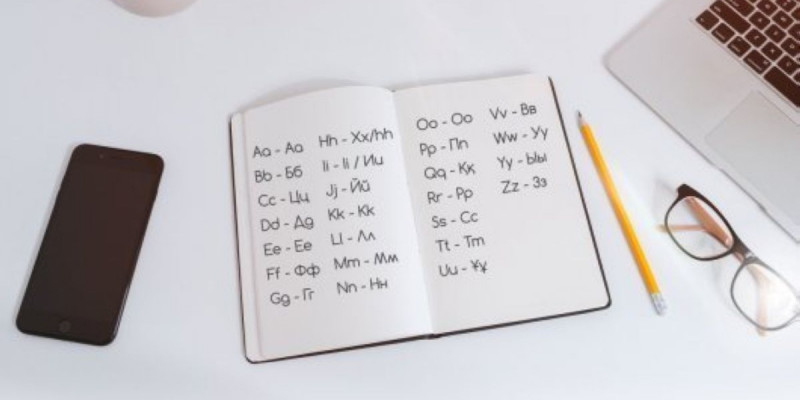 Aa - Аа
Bb - Бб
Cc - Цц
Dd - Дд
Ee - Ее
Ff - Фф
Gg - Гг
Hh - Хх/hh
Ii - Ii / Ии
Jj - Йй
Kk - Кк
Ll - Лл
Mm - Мм
Nn - Нн
Oo - Оо
Pp - Пп
Qq - Кк
Rr - Рр
Ss - Сс
Tt - Тт
Uu - Ұұ
Vv - Вв
Ww - Уу
Yy - Ыы
Zz - Зз